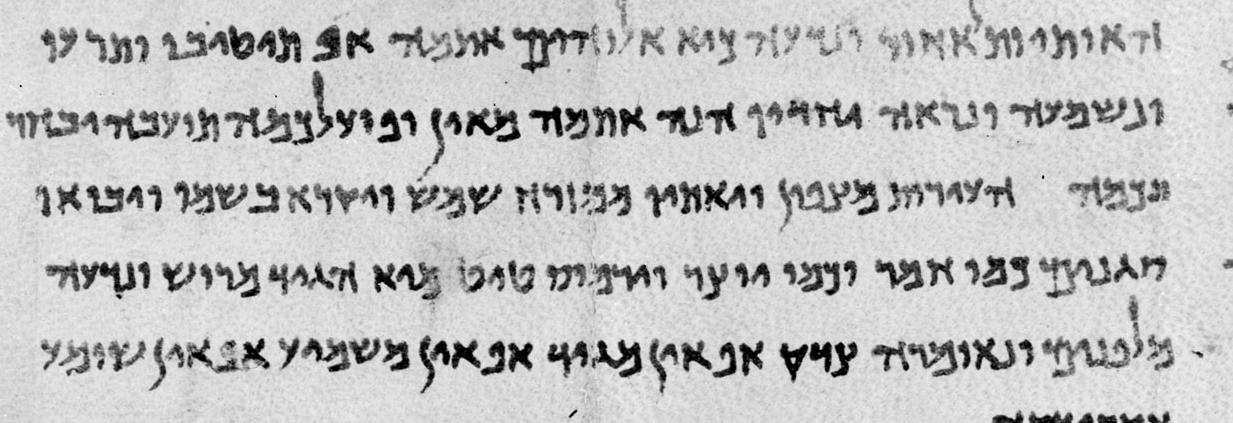 האותיות לאחור ונדעה כיא אלוהים אתמה אפ תיטיבו ותרעו
ונשמעה ונראה יחדיו הנה אתמה מאין ופועלכמה תועבה יבחר
בכמה העירותי מצפון ויאתיו ממזרח שמש ויקרא בשמו ויבואו
סגנים כמו חמר וכמו יוצר וירמוס טיט מיא הגיד מרוש ונדעה
מלפנים ונאומרה צדק אפ אין מגיד אפ אין משמיע אפ אין שומע